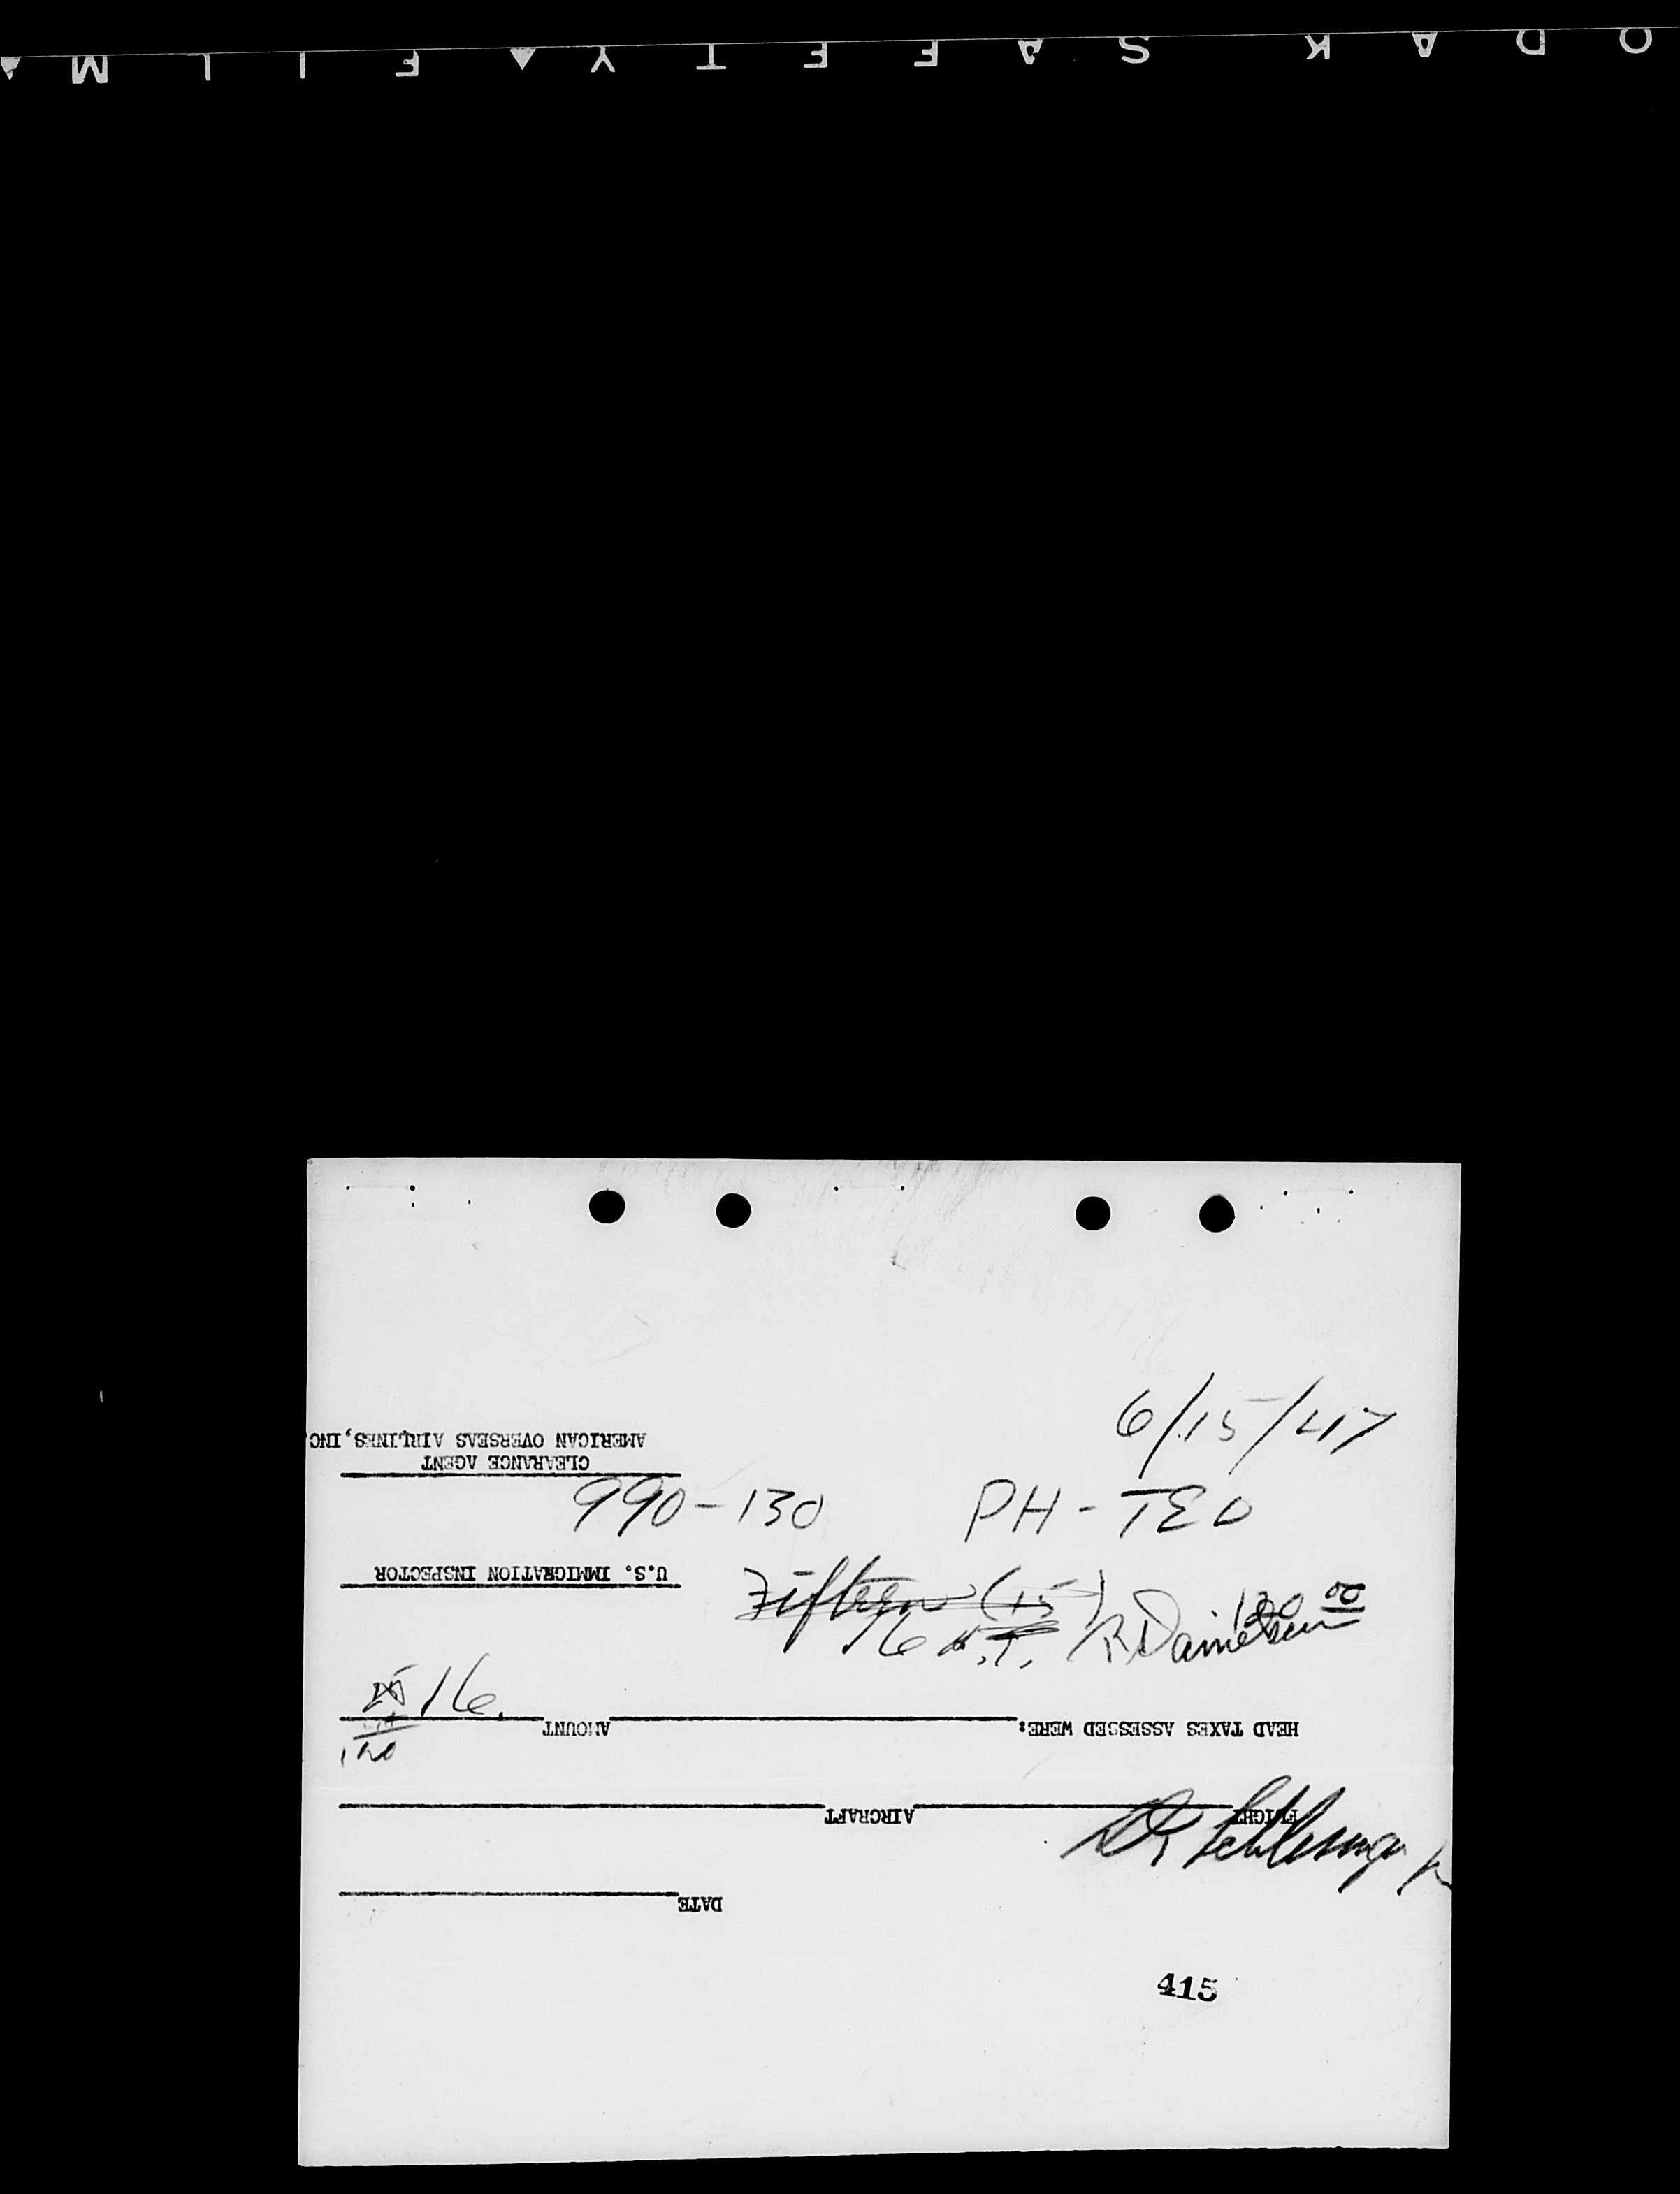 KODAK SAFETY FILM
6/15/47
990-130 PH-TEO
Fifteen (15)
16 H.T. R. Danielsen 120 00
15 16.
120
415
DATE
FLIGHT AIRCRAFT
HEAD TAXES ASSESSED WERE: AMOUNT
U.S. IMMIGRATION INSPECTOR
CLEARANCE AGENT
AMERICAN OVERSEAS AIRLINES, INC